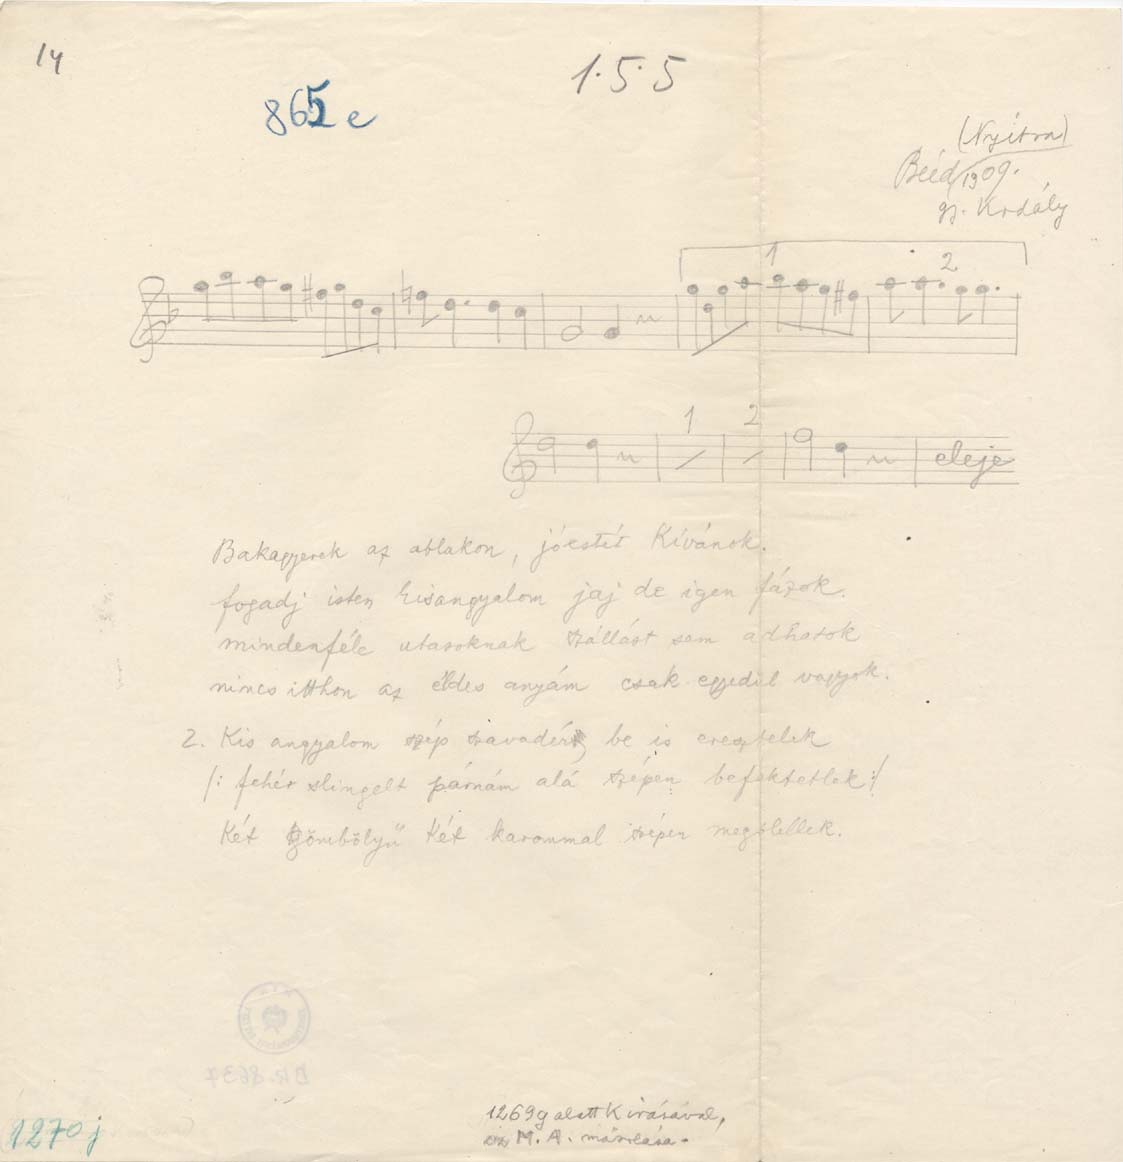 14
1.5.5
865 e
(Nyitra)
Bééd 1909.
gy. Kodály
1 2
1 2
eleje
Bakagyerek az ablakon, jóestét Kívánok.
fogadj isten kisangyalom jaj de igen fázok.
mindenféle utasoknak szállást sem adhatok
nincs itthon az éldes anyám csak egyedül vagyok.
2. Kis angyalom szép szavadért be is eresztelek
/: fehér slingelt párnám alá szépen befektetlek :/
Két gömbölyű két karommal szépen megölellek.
DR. 8637
1270 j
1269g alatt K írásával,
ez M. A. másolása.